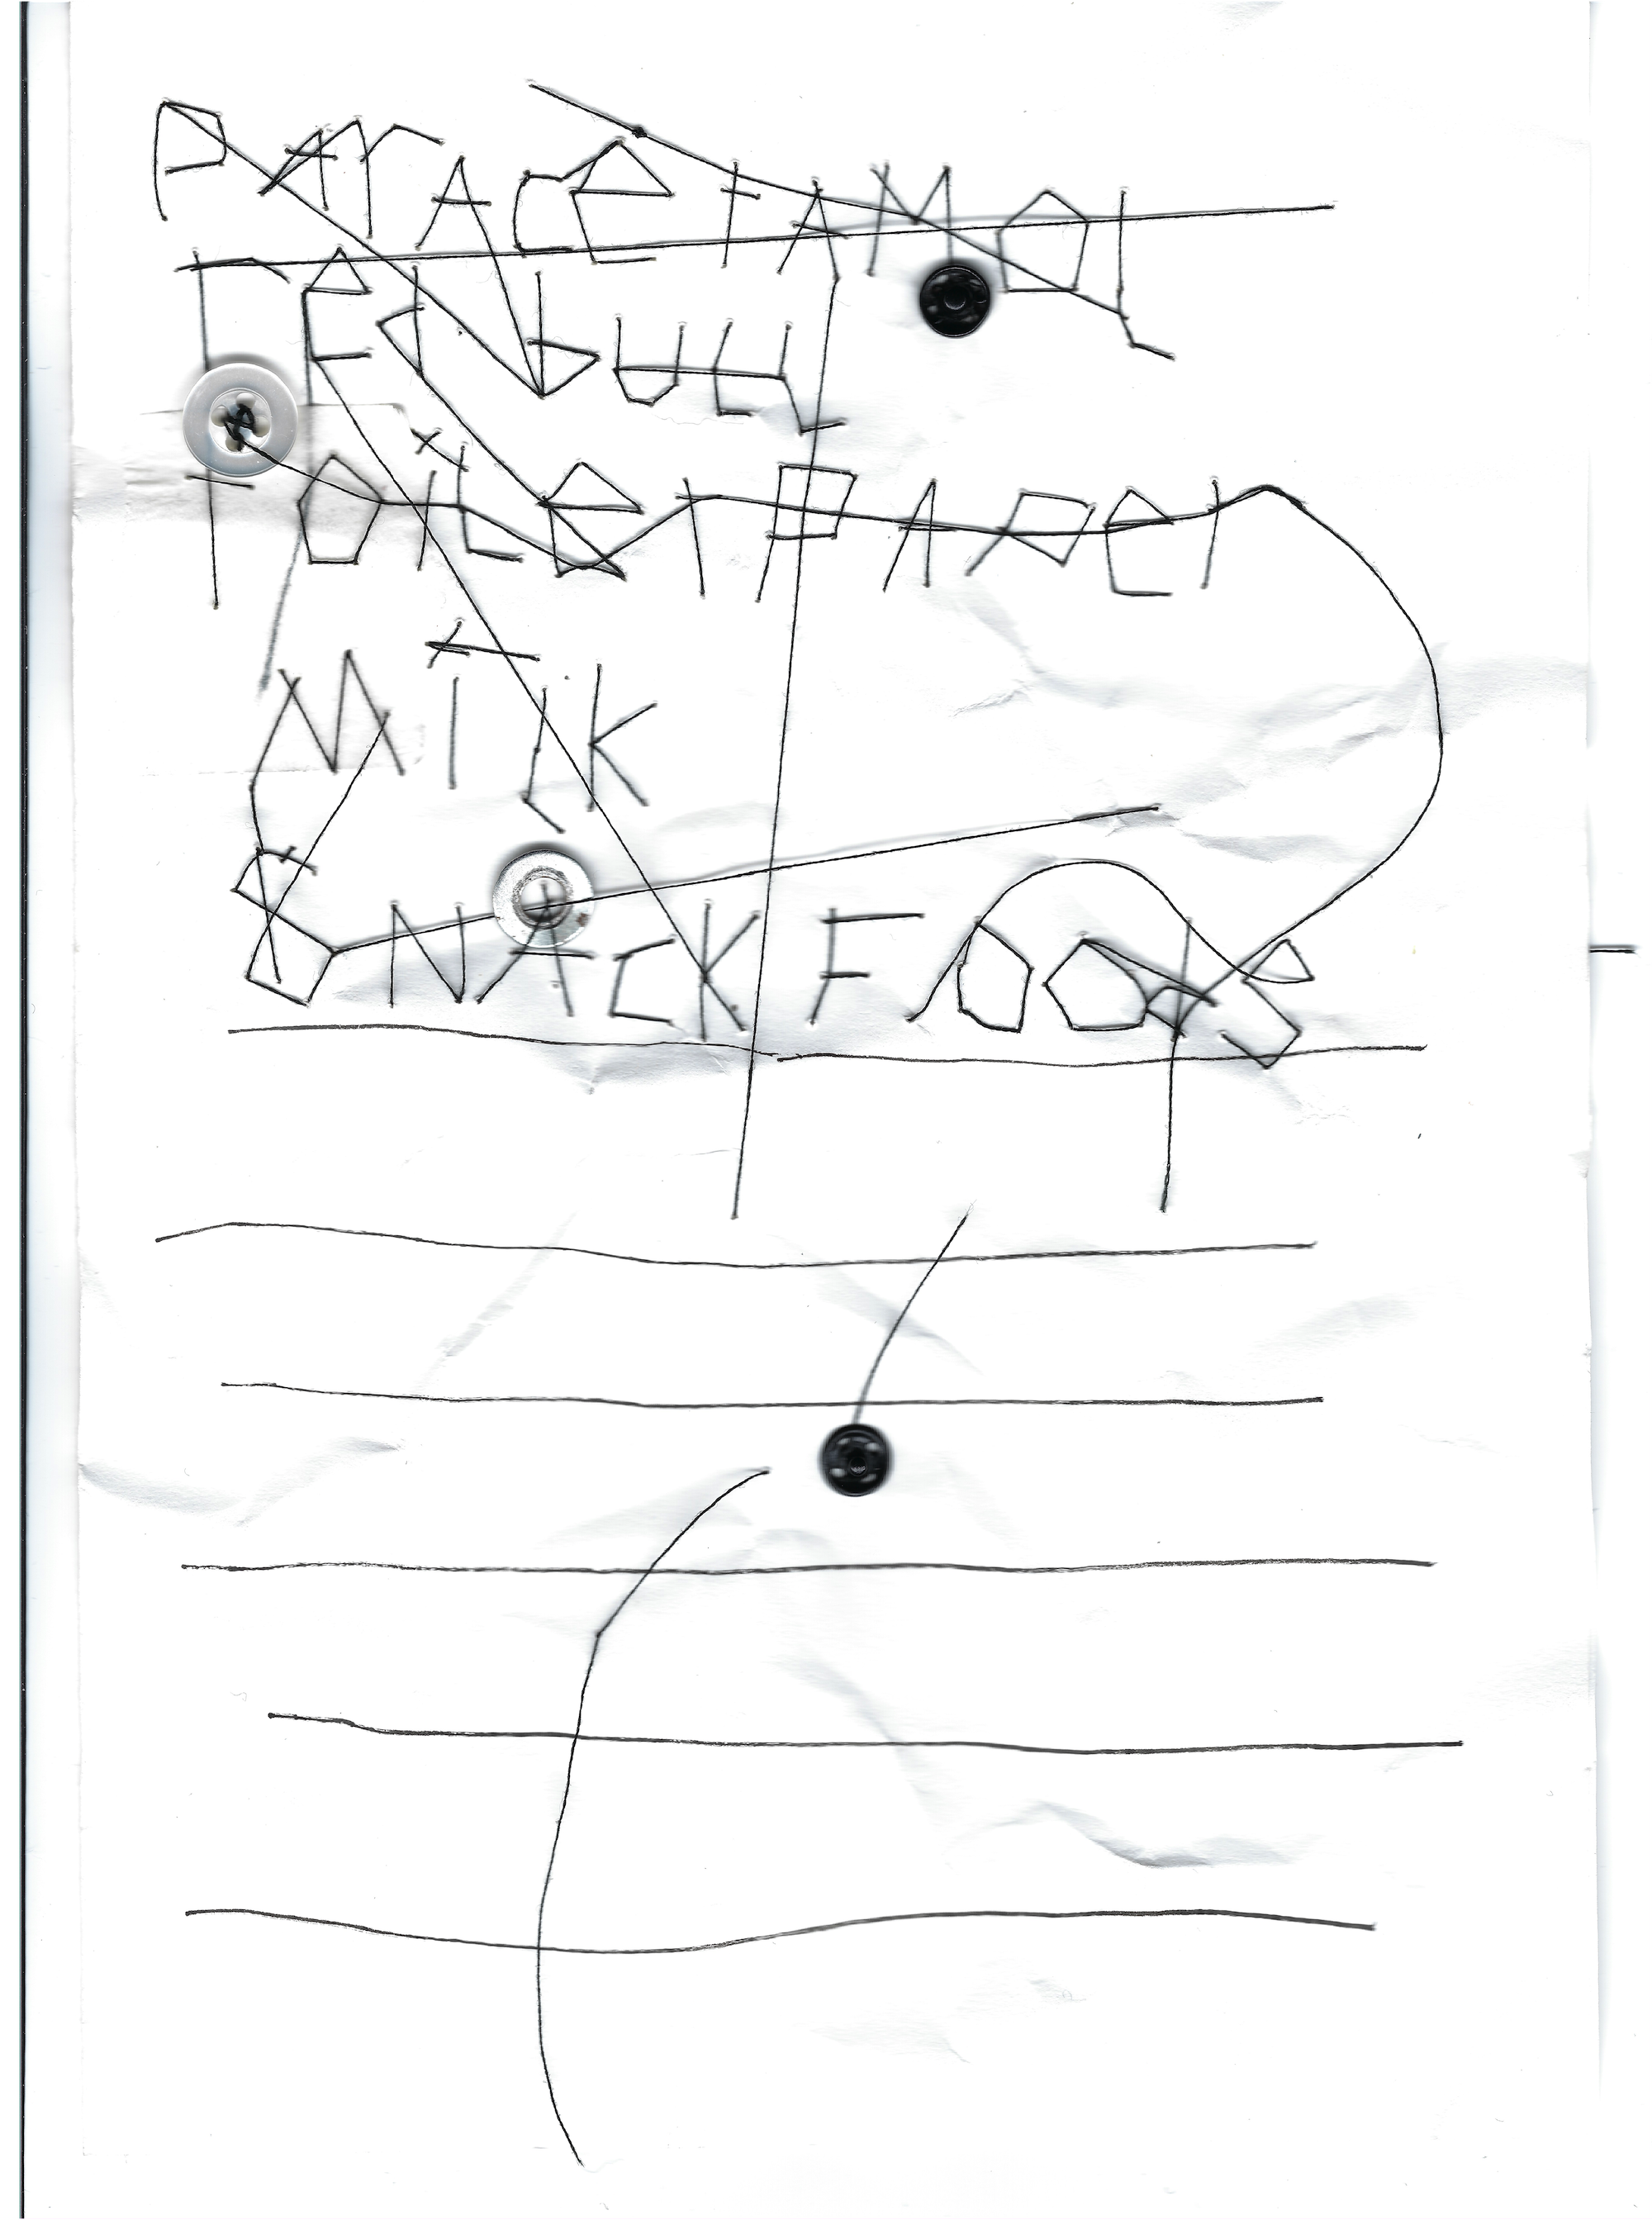 PArAceTAMOl
redbull
TOILeT PAPer
MILK
SNACK FOODS